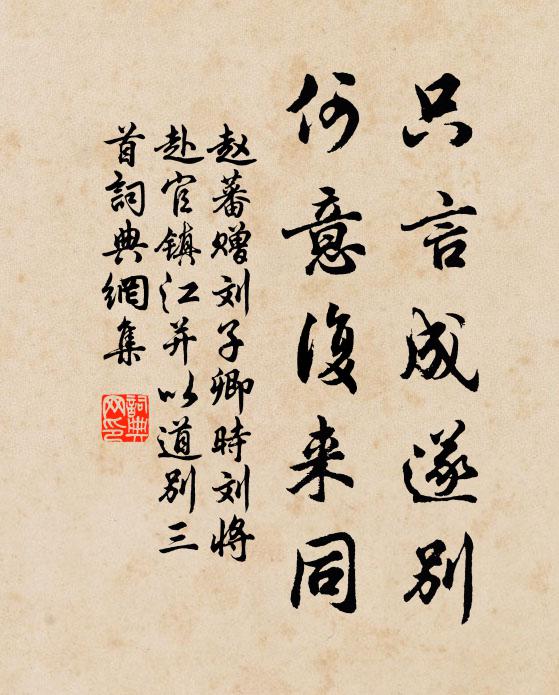 只言成遂别
何意復来同
赵蕃赠刘子卿時刘将
赴官镇江并以道别三
首詞典網集
詞典网印